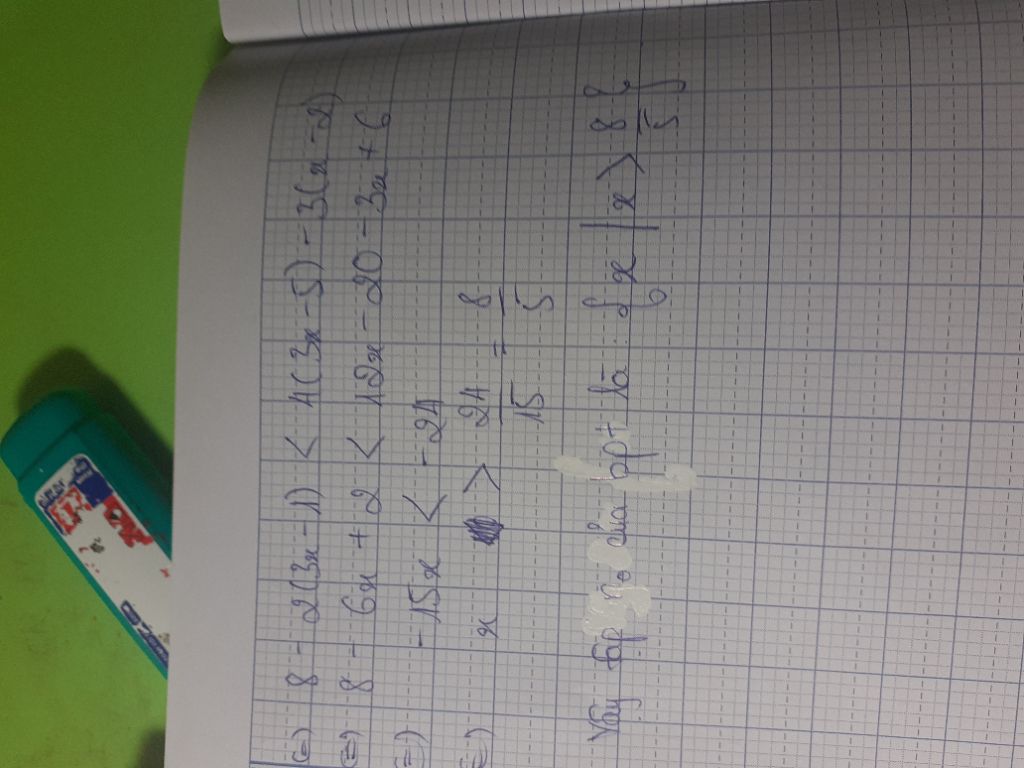 ⇔ 8 - 2(3x - 1) < 4(3x - 5) - 3(x - 2)
⇔ 8 - 6x + 2 < 12x - 20 - 3x + 6
⇔ - 15x < - 24
⇔ x > 24/15 = 8/5
Vậy tập n0 của bpt là {x | x > 8/5}